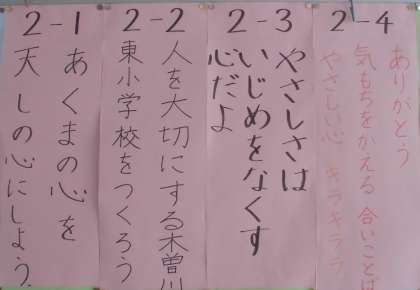 2-1
あくまの心を
天しの心にしよう。
2-2
人を大切にする木曽川
東小学校をつくろう
2-3
やさしさは
いじめをなくす
心だよ
2-4
ありがとう
気もちをかえる 合いことば
やさしい心 キラキララ